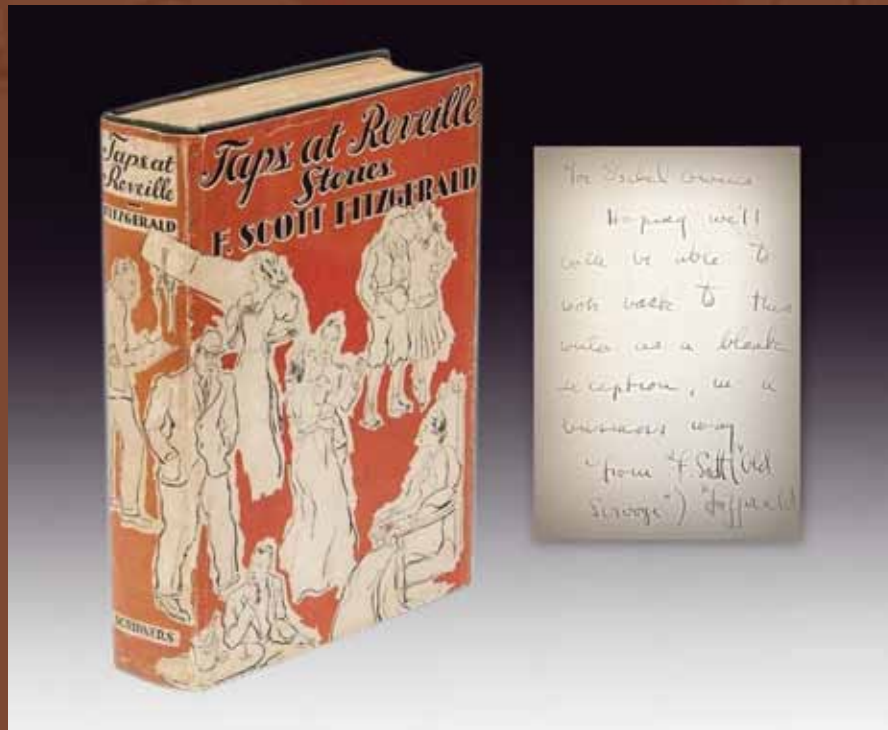 Taps at
Reveille
FITZGERALD
SCRIBNERS
Taps at Reveille
Stories
F. SCOTT FITZGERALD
For Isabel Owens
Hoping we'll
be able to
look back to this
winter as a bleak
exception, in a
business way
from "F. Scott ("Old
Scrooge") Fitzgerald